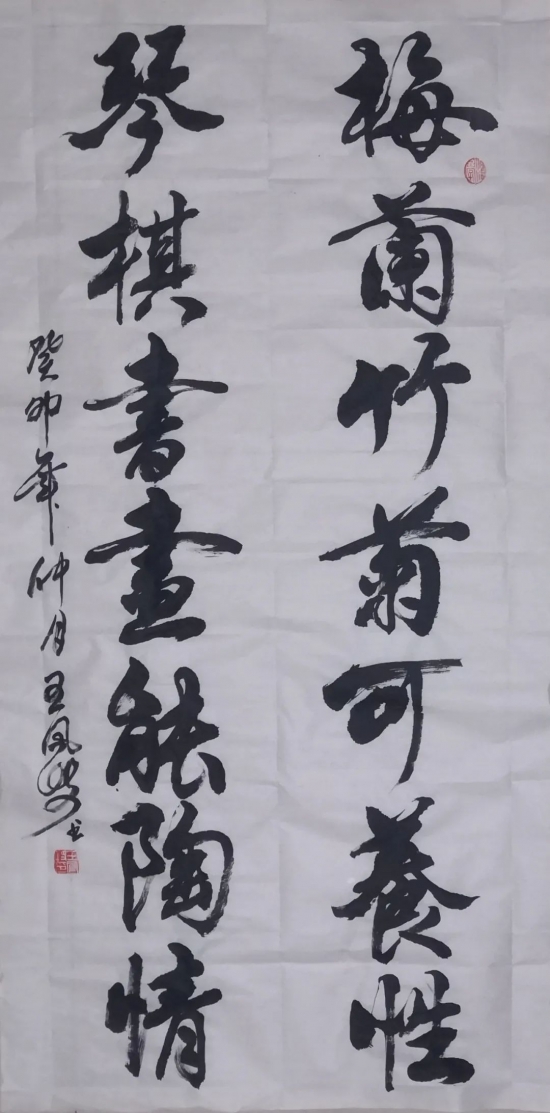 梅蘭竹菊可養性
琴棋書畫能陶情
癸卯年仲月王風 书